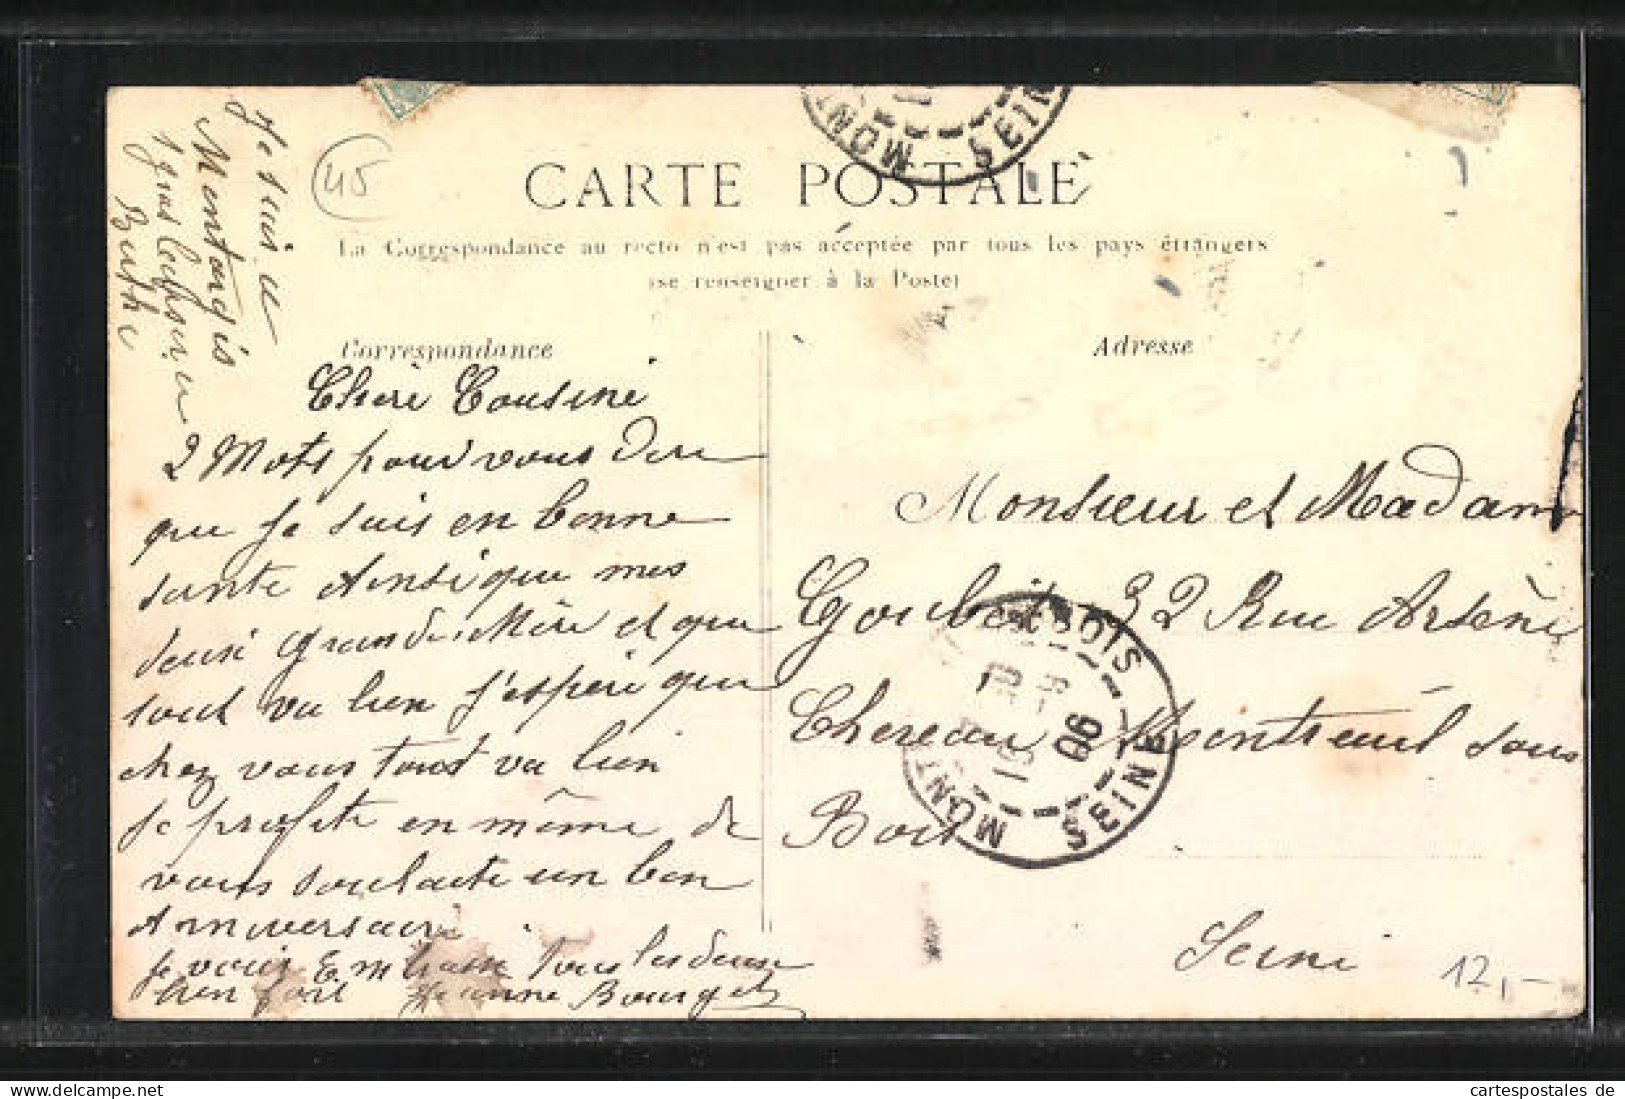 Je suis a
Montargis
1 gros
Berthe
45
CARTE POSTALE
La Correspondance au recto n'est pas acceptée par tous les pays étrangers
(se renseigner à la Poste)
Correspondance
Adresse
Chere Cousine
2 Mots pour vous dire
que je suis en bonne
sante Ainsi que mes
deux Grande Mère et que
tout va bien j'espere que
chez vous tout va bien
je profite en même de
vous souhaite un bon
Anniversaire
je vous Embrasse tous les deux
bien fort Jeanne Bourget
Monsieur et Madam
Goubet 32 Rue Arsène
Chereau Montreuil sous
Bois
Seine
MONT
SEINE
MONT S BOIS
06
SEINE
12,-
cartespostales de